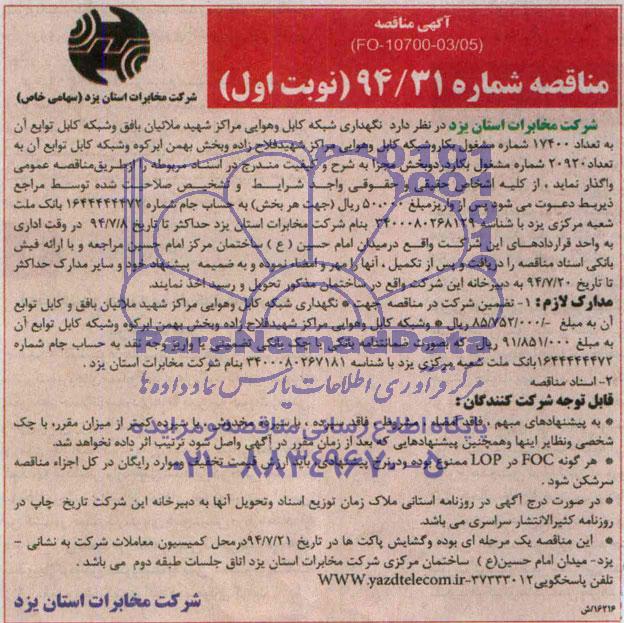 آگهی مناقصه
(FO-10700-03/05)
مناقصه شماره ۹۴/۳۱ (نوبت اول)
شرکت مخابرات استان یزد (سهامی خاص)
شرکت مخابرات استان یزد در نظر دارد نگهداری شبکه کابل وهوایی مراکز شهید ملائیان بافق وشبکه کابل توابع آن
به تعداد ۱۷۴۰۰ شماره مشغول بکار وشبکه کابل وهوایی مراکز شهیدفلاح زاده وبخش بهمن ابرکوه وشبکه کابل توابع آن به
تعداد ۲۰۹۲۰ شماره مشغول بکار در دوبخش مجزا به شرح و کیفیت مندرج در اسناد مربوطه را ازطریق مناقصه عمومی
واگذار نماید ، از کلیه اشخاص حقیقی و حقوقی واجد شرایط و تشخیص صلاحیت شده توسط مراجع
ذیربط دعوت می شود پس از واریزمبلغ ۵۰۰۰۰۰ ریال (جهت هر بخش) به حساب جام شماره ۱۶۴۴۴۴۴۴۷۲ بانک ملت
شعبه مرکزی یزد با شناسه بنام شرکت مخابرات استان یزد حداکثر تا تاریخ ۹۴/۷/۸ در وقت اداری
به واحد قراردادهای این شرکت واقع درمیدان امام حسین ( ع ) ساختمان مرکز امام حسین مراجعه و با ارائه فیش
بانکی اسناد مناقصه را دریافت و پس از تکمیل ، آنها را مهر و امضاء نموده و به ضمیمه پیشنهاد خود و سایر مدارک حداکثر
تا تاریخ ۹۴/۷/۲۰ به دبیرخانه این شرکت واقع در ساختمان مذکور تحویل و رسید اخذ نمایند.
مدارک لازم : ۱- تضمین شرکت در مناقصه جهت * نگهداری شبکه کابل وهوایی مراکز شهید ملائیان بافق و کابل توابع
آن به مبلغ ۸۵/۷۵۲/۰۰۰/- ریال * وشبکه کابل وهوایی مراکز شهیدفلاح زاده وبخش بهمن ابرکوه وشبکه کابل توابع آن
به مبلغ ۹۱/۸۵۱/۰۰۰ ریال که بصورت ضمانتنامه بانکی یا چک بانکی تضمینی یا واریز وجه نقد به حساب جام شماره
۱۶۴۴۴۴۴۴۷۲ بانک ملت شعبه مرکزی یزد با شناسه ۳۴۰۰۰۸۰۲۶۷۱۸۱ بنام شرکت مخابرات استان یزد .
۲- اسناد مناقصه
قابل توجه شرکت کنندگان :
* به پیشنهادهای مبهم ، فاقد امضاء ، مشروط ، فاقد سپرده ، با سپرده مخدوش ، یا سپرده کمتر از میزان مقرر، با چک
شخصی ونظایر اینها وهمچنین پیشنهادهایی که بعد از زمان مقرر در آگهی واصل شود ترتیب اثر داده نخواهد شد.
* هر گونه FOC در LOP ممنوع بوده ودرنرخ پیشنهادی، باید ارزش قیمت تخفیف وموارد رایگان در کل اجزاء مناقصه
سرشکن شود .
* در صورت درج آگهی در روزنامه استانی ملاک زمان توزیع اسناد وتحویل آنها به دبیرخانه این شرکت تاریخ چاپ در
روزنامه کثیرالانتشار سراسری می باشد.
* این مناقصه یک مرحله ای بوده وگشایش پاکت ها در تاریخ ۹۴/۷/۲۱ درمحل کمیسیون معاملات شرکت به نشانی -
یزد- میدان امام حسین(ع ) ساختمان مرکزی شرکت مخابرات استان یزد اتاق جلسات طبقه دوم می باشد .
تلفن پاسخگویی ۳۷۳۳۳۰۱۲-WWW.yazdtelecom.ir
شرکت مخابرات استان یزد
۱۶۲۱۶/ش
ParsNamadData
مرکز فرآوری اطلاعات پارس نماد داده ها
پایگاه اطلاع رسانی مناقصه و مزایده
۰۲۱-۸۸۳۴۹۶۷۰-۵